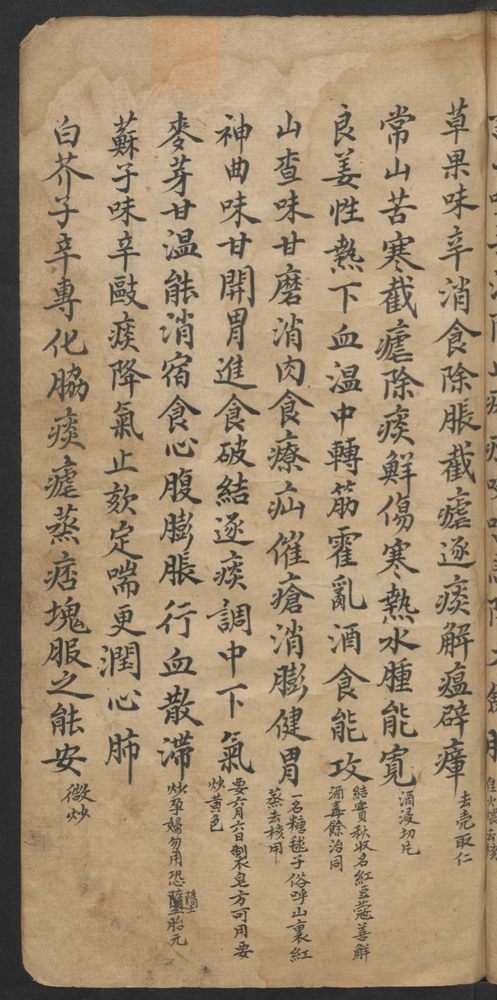 草果味辛消食除脹截瘧逐痰解瘟辟瘴 去壳取仁
常山苦寒截瘧除痰鮮傷寒熱水腫能寬 酒浸切片
良姜性熱下血温中轉筋霍亂酒食能攻 結實秋收名紅豆蔻善解
酒毒餘治同
山查味甘磨消肉食療疝催瘡消膨健胃 一名糖毬子俗呼山裏紅
蒸去核用
神曲味甘開胃進食破結逐痰調中下氣 要六月六日制衣皂方可用要
炒黄色
麥芽甘温能消宿食心腹膨脹行血散滯 炒孕婦勿用恐墮胎元
墮
蘇子味辛敺痰降氣止欬定喘更潤心肺
白芥子辛專化脇痰瘧蒸痞塊服之能安 微炒